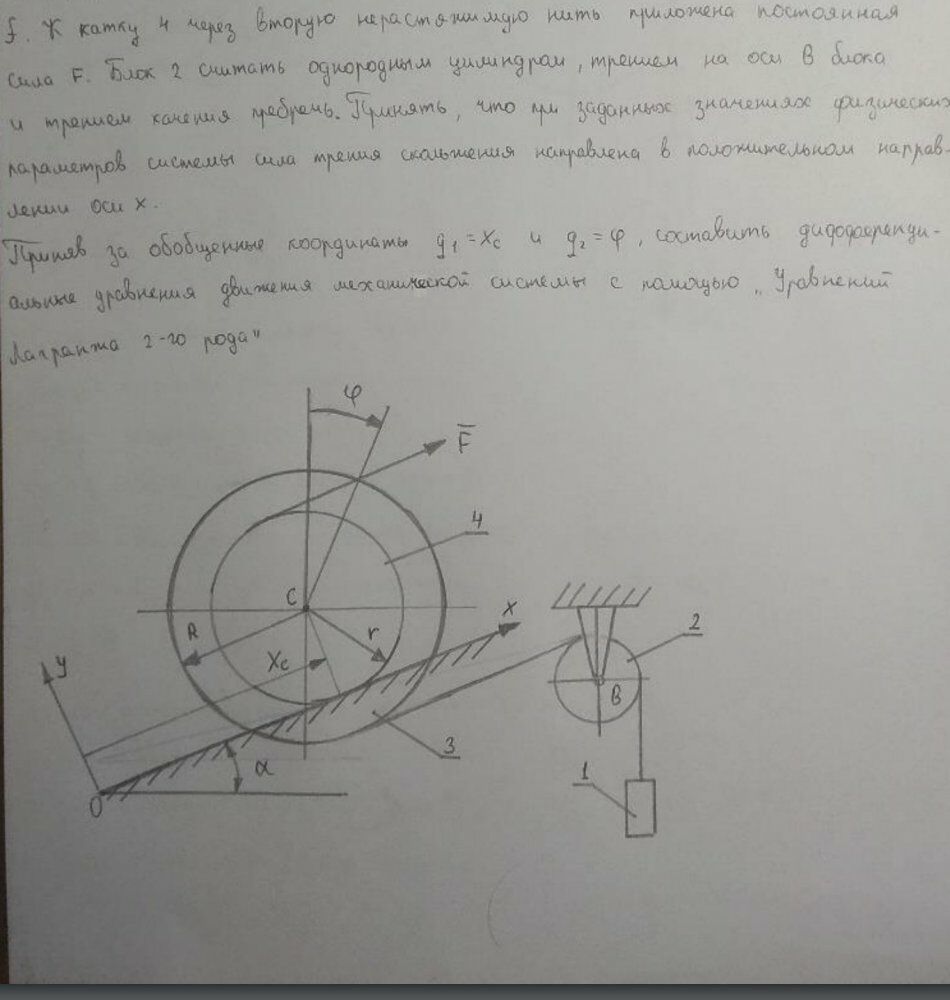 f. К катку 4 через вторую нерастяжимую нить приложена постоянная
сила F. Блок 2 считать однородным цилиндром, трением на оси B блока
и трением качения пребречь. Принять, что при заданных значениях физических
параметров системы сила трения скольжения направлена в положительном направ-
лении оси x.
Приняв за обобщенные координаты q₁ = xc и q₂ = φ, составить дифференци-
альные уравнения движения механической системы с помощью „Уравнений
Лагранжа 2-го рода"
φ
F̅
4
C
x
2
R
r
y
Xc
B
3
α
1
O